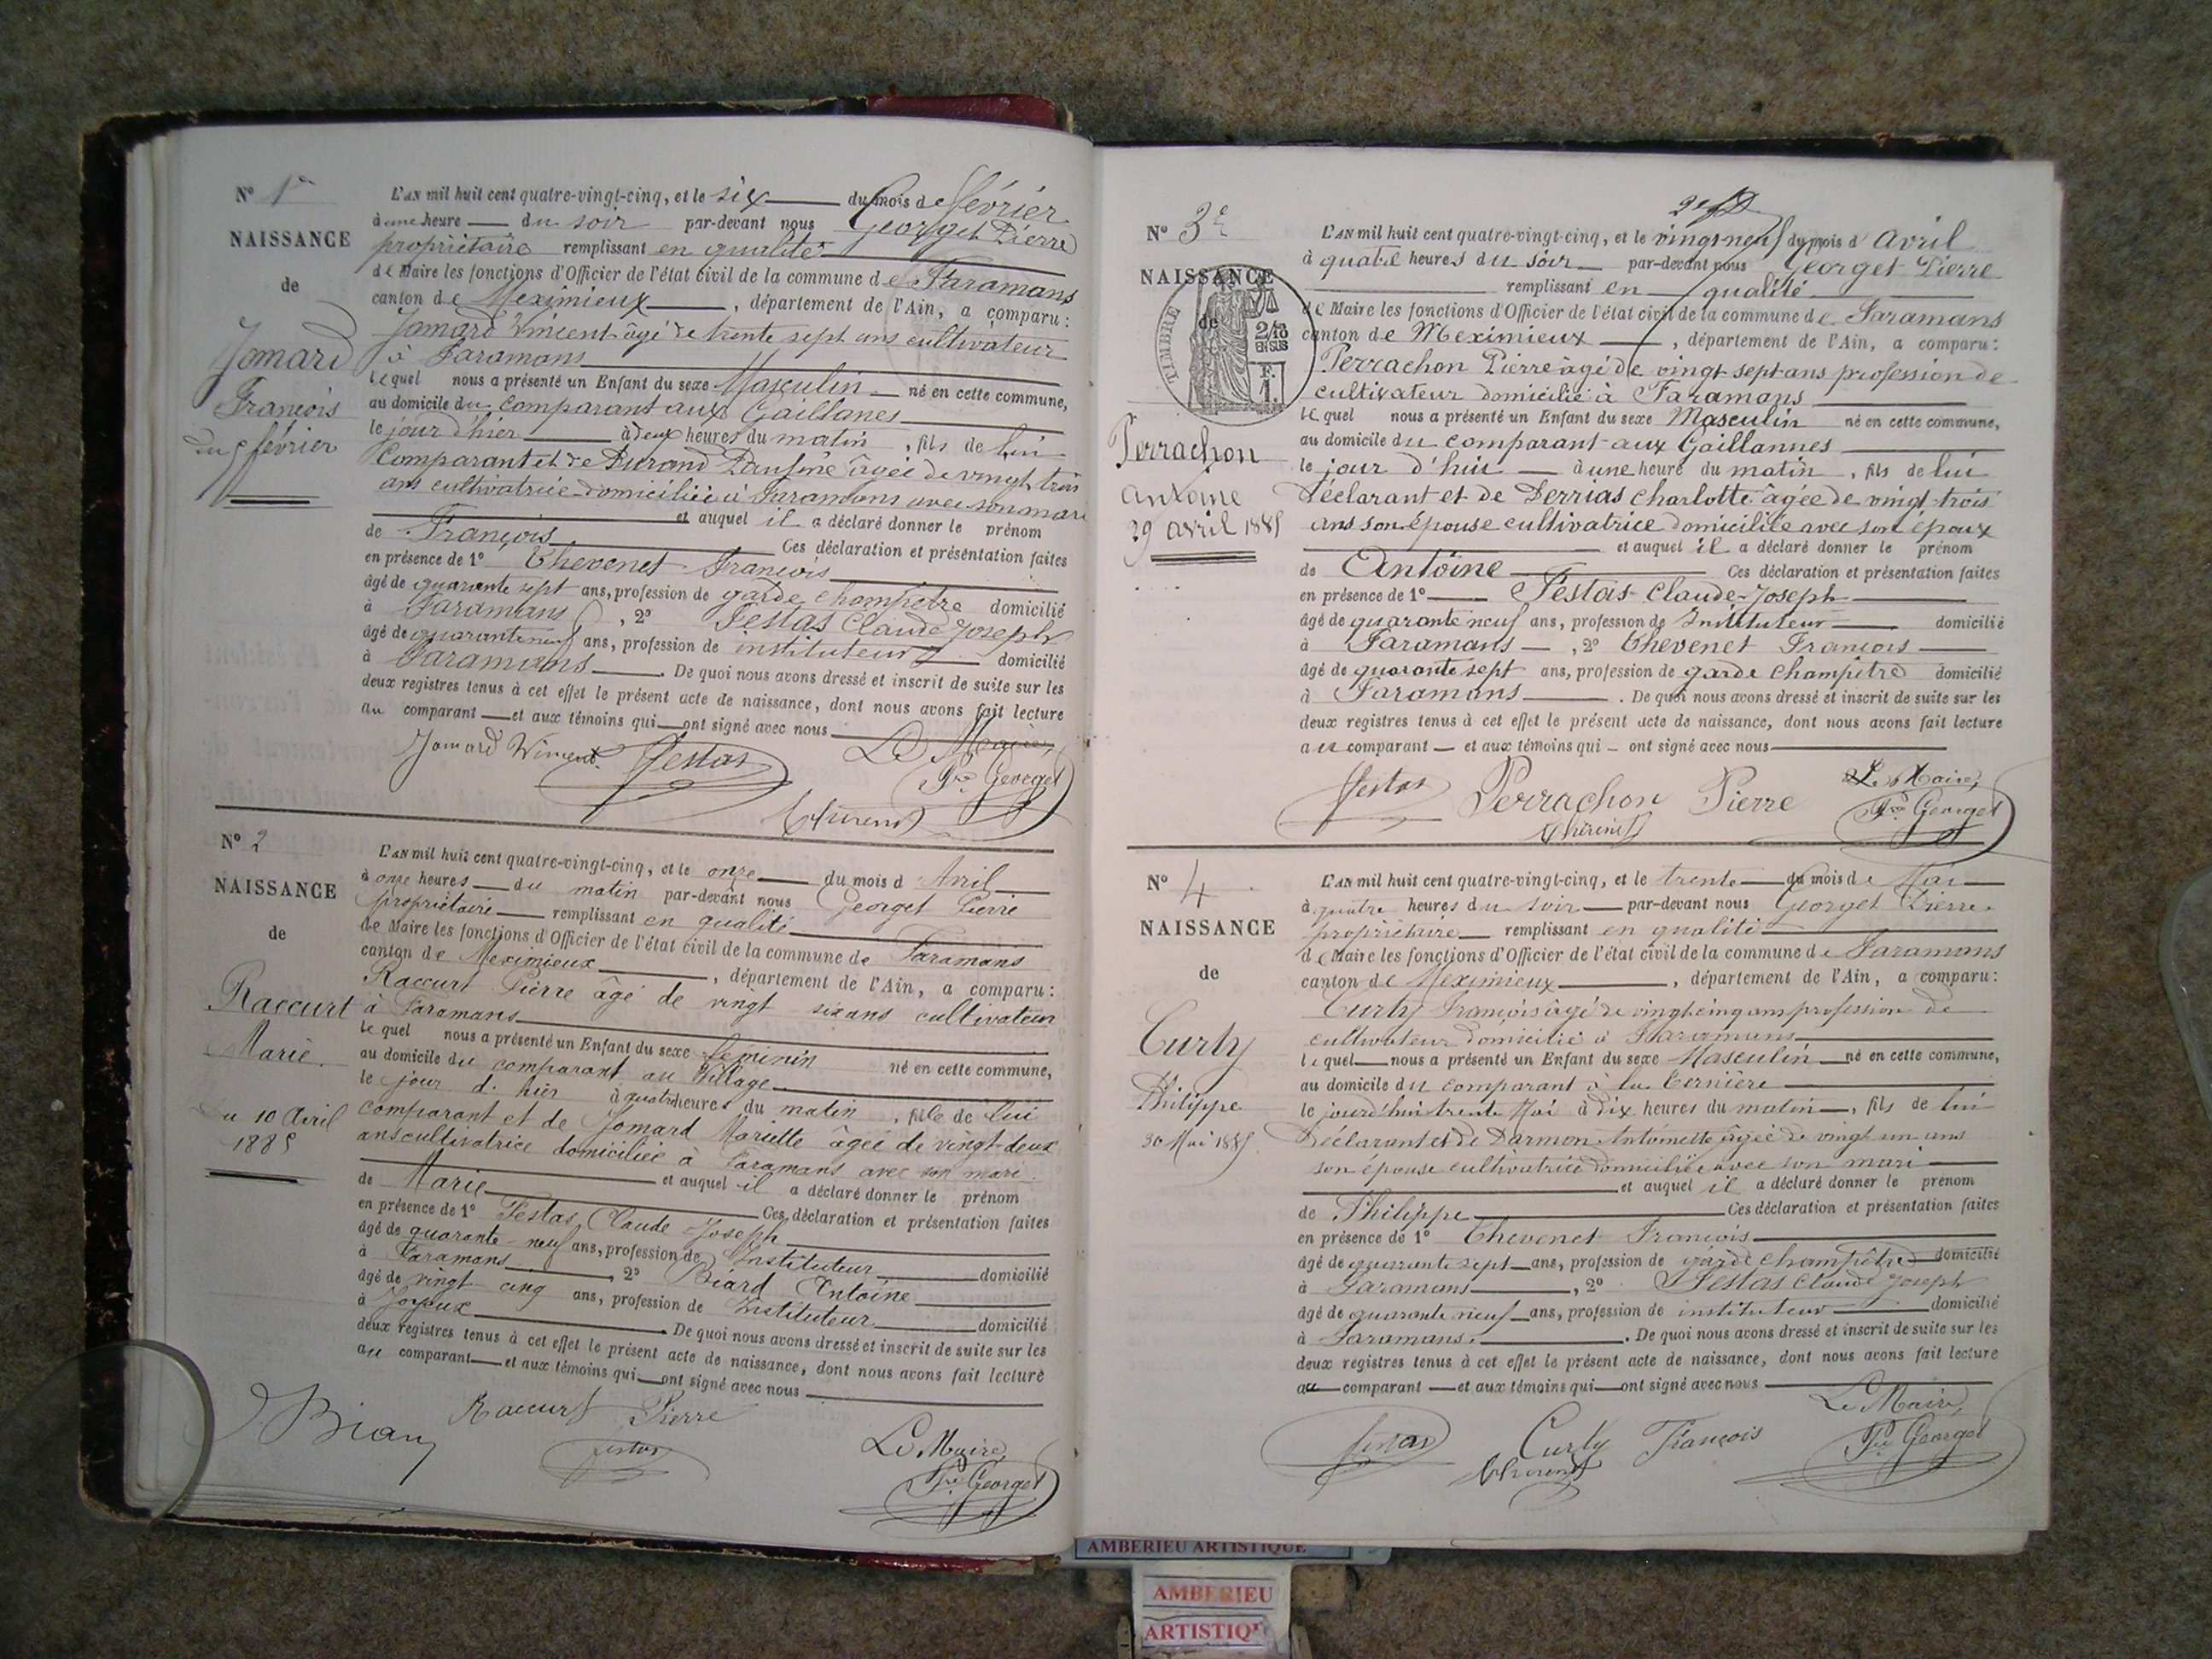 N° 1er
NAISSANCE
de
Jomard
François
du 5 février
L'AN mil huit cent quatre-vingt-cinq, et le six du mois de février
à une heure du soir par-devant nous Georget Pierre
propriétaire remplissant en qualité
de Maire les fonctions d'Officier de l'état civil de la commune de Faramans
canton de Meximieux, département de l'Ain, a comparu:
Jomard Vincent âgé de trente sept ans cultivateur
à Faramans
lequel nous a présenté un Enfant du sexe Masculin né en cette commune,
au domicile du comparant aux Gaillanes
le jour d'hier à deux heures du matin, fils de lui
comparant et de Durand âgée de vingt trois
ans cultivatrice domiciliée à Faramans avec son mari
et auquel il a déclaré donner le prénom
de François Ces déclaration et présentation faites
en présence de 1° Thevenet François
âgé de quarante sept ans, profession de garde champêtre domicilié
à Faramans, 2° Festas Claude Joseph
âgé de quarante neuf ans, profession de instituteur domicilié
à Faramans. De quoi nous avons dressé et inscrit de suite sur les
deux registres tenus à cet effet le présent acte de naissance, dont nous avons fait lecture
au comparant et aux témoins qui ont signé avec nous
Jomard Vincent Festas Le Maire,
Pre Georget
Thevenet
N° 2
NAISSANCE
de
Raccurt
Marie.
du 10 Avril
1885
L'AN mil huit cent quatre-vingt-cinq, et le onze du mois d Avril
à onze heures du matin par-devant nous Georget Pierre
propriétaire remplissant en qualité
de Maire les fonctions d'Officier de l'état civil de la commune de Faramans
canton de Meximieux, département de l'Ain, a comparu:
Raccurt Pierre âgé de vingt six ans cultivateur
à Faramans
lequel nous a présenté un Enfant du sexe féminin né en cette commune,
au domicile du comparant au Village
le jour d'hier à quatre heures du matin, fille de lui
comparant et de Jomard Mariette âgée de vingt-deux
ans cultivatrice domiciliée à Faramans avec son mari.
et auquel il a déclaré donner le prénom
de Marie Ces déclaration et présentation faites
en présence de 1° Festas Claude Joseph
âgé de quarante-neuf ans, profession de Instituteur domicilié
à Faramans, 2° Biard Antoine
âgé de vingt cinq ans, profession de Instituteur domicilié
à Joyeux. De quoi nous avons dressé et inscrit de suite sur les
deux registres tenus à cet effet le présent acte de naissance, dont nous avons fait lecture
au comparant et aux témoins qui ont signé avec nous
Raccurt Pierre
Festas Le Maire,
Pre Georget
N° 3e
NAISSANCE
de
TIMBRE
2/10
EN SUS
F.
1.
Perrachon
Antoine
29 avril 1885
L'AN mil huit cent quatre-vingt-cinq, et le vingt-neuf du mois d Avril
à quatre heures du soir par-devant nous Georget Pierre
remplissant en qualité
de Maire les fonctions d'Officier de l'état civil de la commune de Faramans
canton de Meximieux, département de l'Ain, a comparu:
Perrachon Pierre âgé de vingt sept ans profession de
cultivateur domicilié à Faramans
lequel nous a présenté un Enfant du sexe Masculin né en cette commune,
au domicile du comparant aux Gaillannes
le jour d'hui à une heure du matin, fils de lui
déclarant et de Perrias Charlotte âgée de vingt-trois
ans son épouse cultivatrice domiciliée avec son époux
et auquel il a déclaré donner le prénom
de Antoine Ces déclaration et présentation faites
en présence de 1° Festas Claude-Joseph
âgé de quarante neuf ans, profession de Instituteur domicilié
à Faramans, 2° Thevenet François
âgé de quarante sept ans, profession de garde champêtre domicilié
à Faramans. De quoi nous avons dressé et inscrit de suite sur les
deux registres tenus à cet effet le présent acte de naissance, dont nous avons fait lecture
au comparant et aux témoins qui ont signé avec nous
Festas Perrachon Pierre Le Maire,
Thevenet Pre Georget
N° 4
NAISSANCE
de
Curty
Philippe
30 Mai 1885
L'AN mil huit cent quatre-vingt-cinq, et le trente du mois de Mai
à quatre heures du soir par-devant nous Georget Pierre
propriétaire remplissant en qualité
de Maire les fonctions d'Officier de l'état civil de la commune de Faramans
canton de Meximieux, département de l'Ain, a comparu:
Curty François âgé de vingt cinq ans profession de
cultivateur domicilié à Faramans
lequel nous a présenté un Enfant du sexe Masculin né en cette commune,
au domicile du comparant à la
le jourd'hui trente Mai à dix heures du matin, fils de lui
Déclarant et de Darmon Antoinette âgée de vingt un ans
son épouse cultivatrice domiciliée avec son mari
et auquel il a déclaré donner le prénom
de Philippe Ces déclaration et présentation faites
en présence de 1° Thevenet François
âgé de quarante sept ans, profession de garde champêtre domicilié
à Faramans, 2° Festas Claude Joseph
âgé de quarante neuf ans, profession de instituteur domicilié
à Faramans. De quoi nous avons dressé et inscrit de suite sur les
deux registres tenus à cet effet le présent acte de naissance, dont nous avons fait lecture
au comparant et aux témoins qui ont signé avec nous
Le Maire,
Festas Curty François Pre Georget
Thevenet
AMBERIEU ARTISTIQUE
AMBERIEU
ARTISTIQU